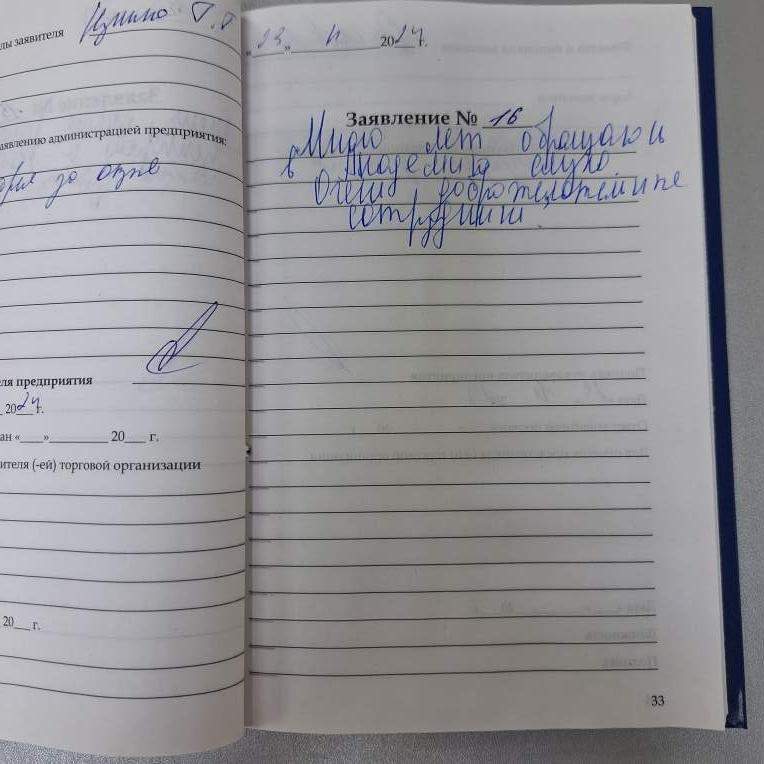 лы заявителя
Т.Т
аявлению администрацией предприятия:
за
ля предприятия
2024 г.
ан «___»_________ 20___ г.
ителя (-ей) торговой организации
20___ г.
«23» 11 2024 г.
Заявление № 16
Много лет обращаюсь
в Академию слуха.
Очень доброжелательные
сотрудники.
33